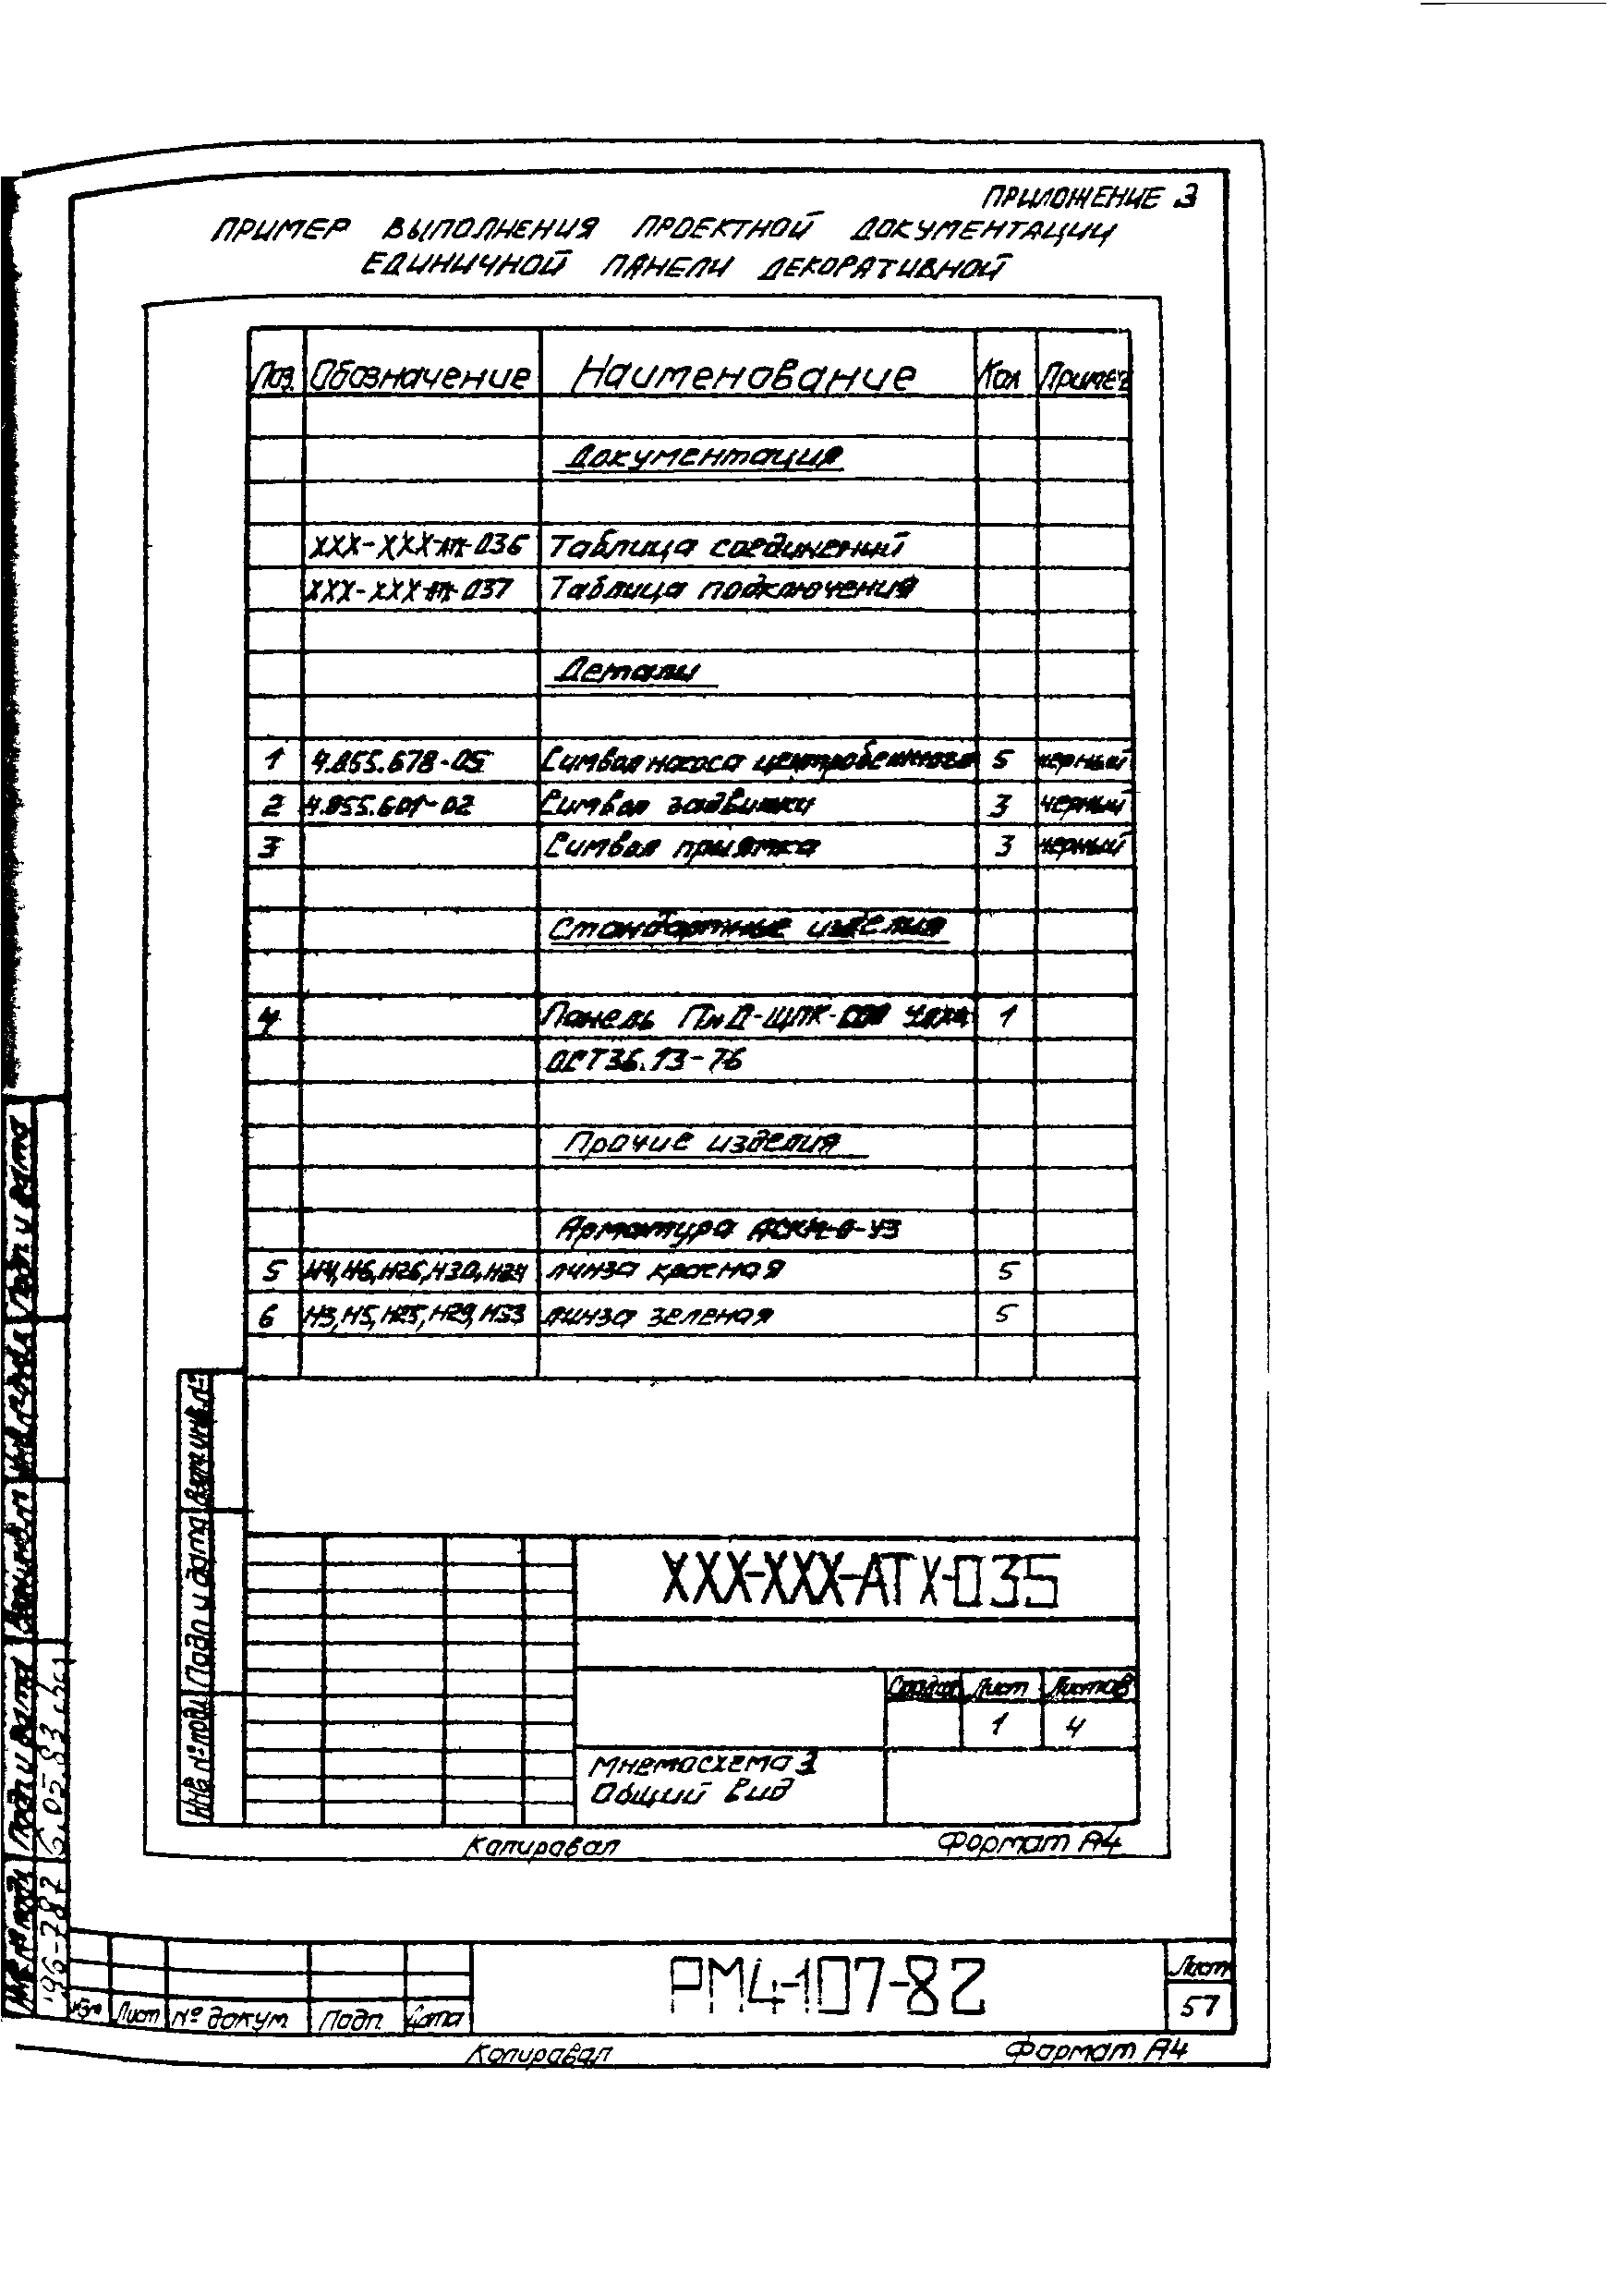 ПРИЛОЖЕНИЕ 3
ПРИМЕР ВЫПОЛНЕНИЯ ПРОЕКТНОЙ ДОКУМЕНТАЦИИ
ЕДИНИЧНОЙ ПАНЕЛИ ДЕКОРАТИВНОЙ
Поз. Обозначение Наименование Кол Примеч
Документация
XXX-XXX-АТХ-036 Таблица соединений
XXX-XXX-АТХ-037 Таблица подключения
Детали
1 4.855.678-05 Символ насоса центробежного 5 черный
2 4.855.601-02 Символ задвижки 3 черный
3 Символ приямка 3 черный
Стандартные изделия
4 Панель ПнД-ЩПК- 1
ОСТ36.13-76
Прочие изделия
Арматура АСКМ-0-У3
5 Н4,Н6,Н26,Н30, линза красная 5
6 Н3,Н5,Н25,Н29, линза зеленая 5
Взам инв.№
Подп и дата
Инв №подл
XXX-XXX-АТХ-035
Стадия Лист Листов
1 4
Мнемосхема 3
Общий вид
Копировал Формат А4
Подп и дата
Подп и дата
Инв № подл
Изм Лист № докум Подп. Дата
РМ4-107-82
Лист
57
Копировал Формат А4